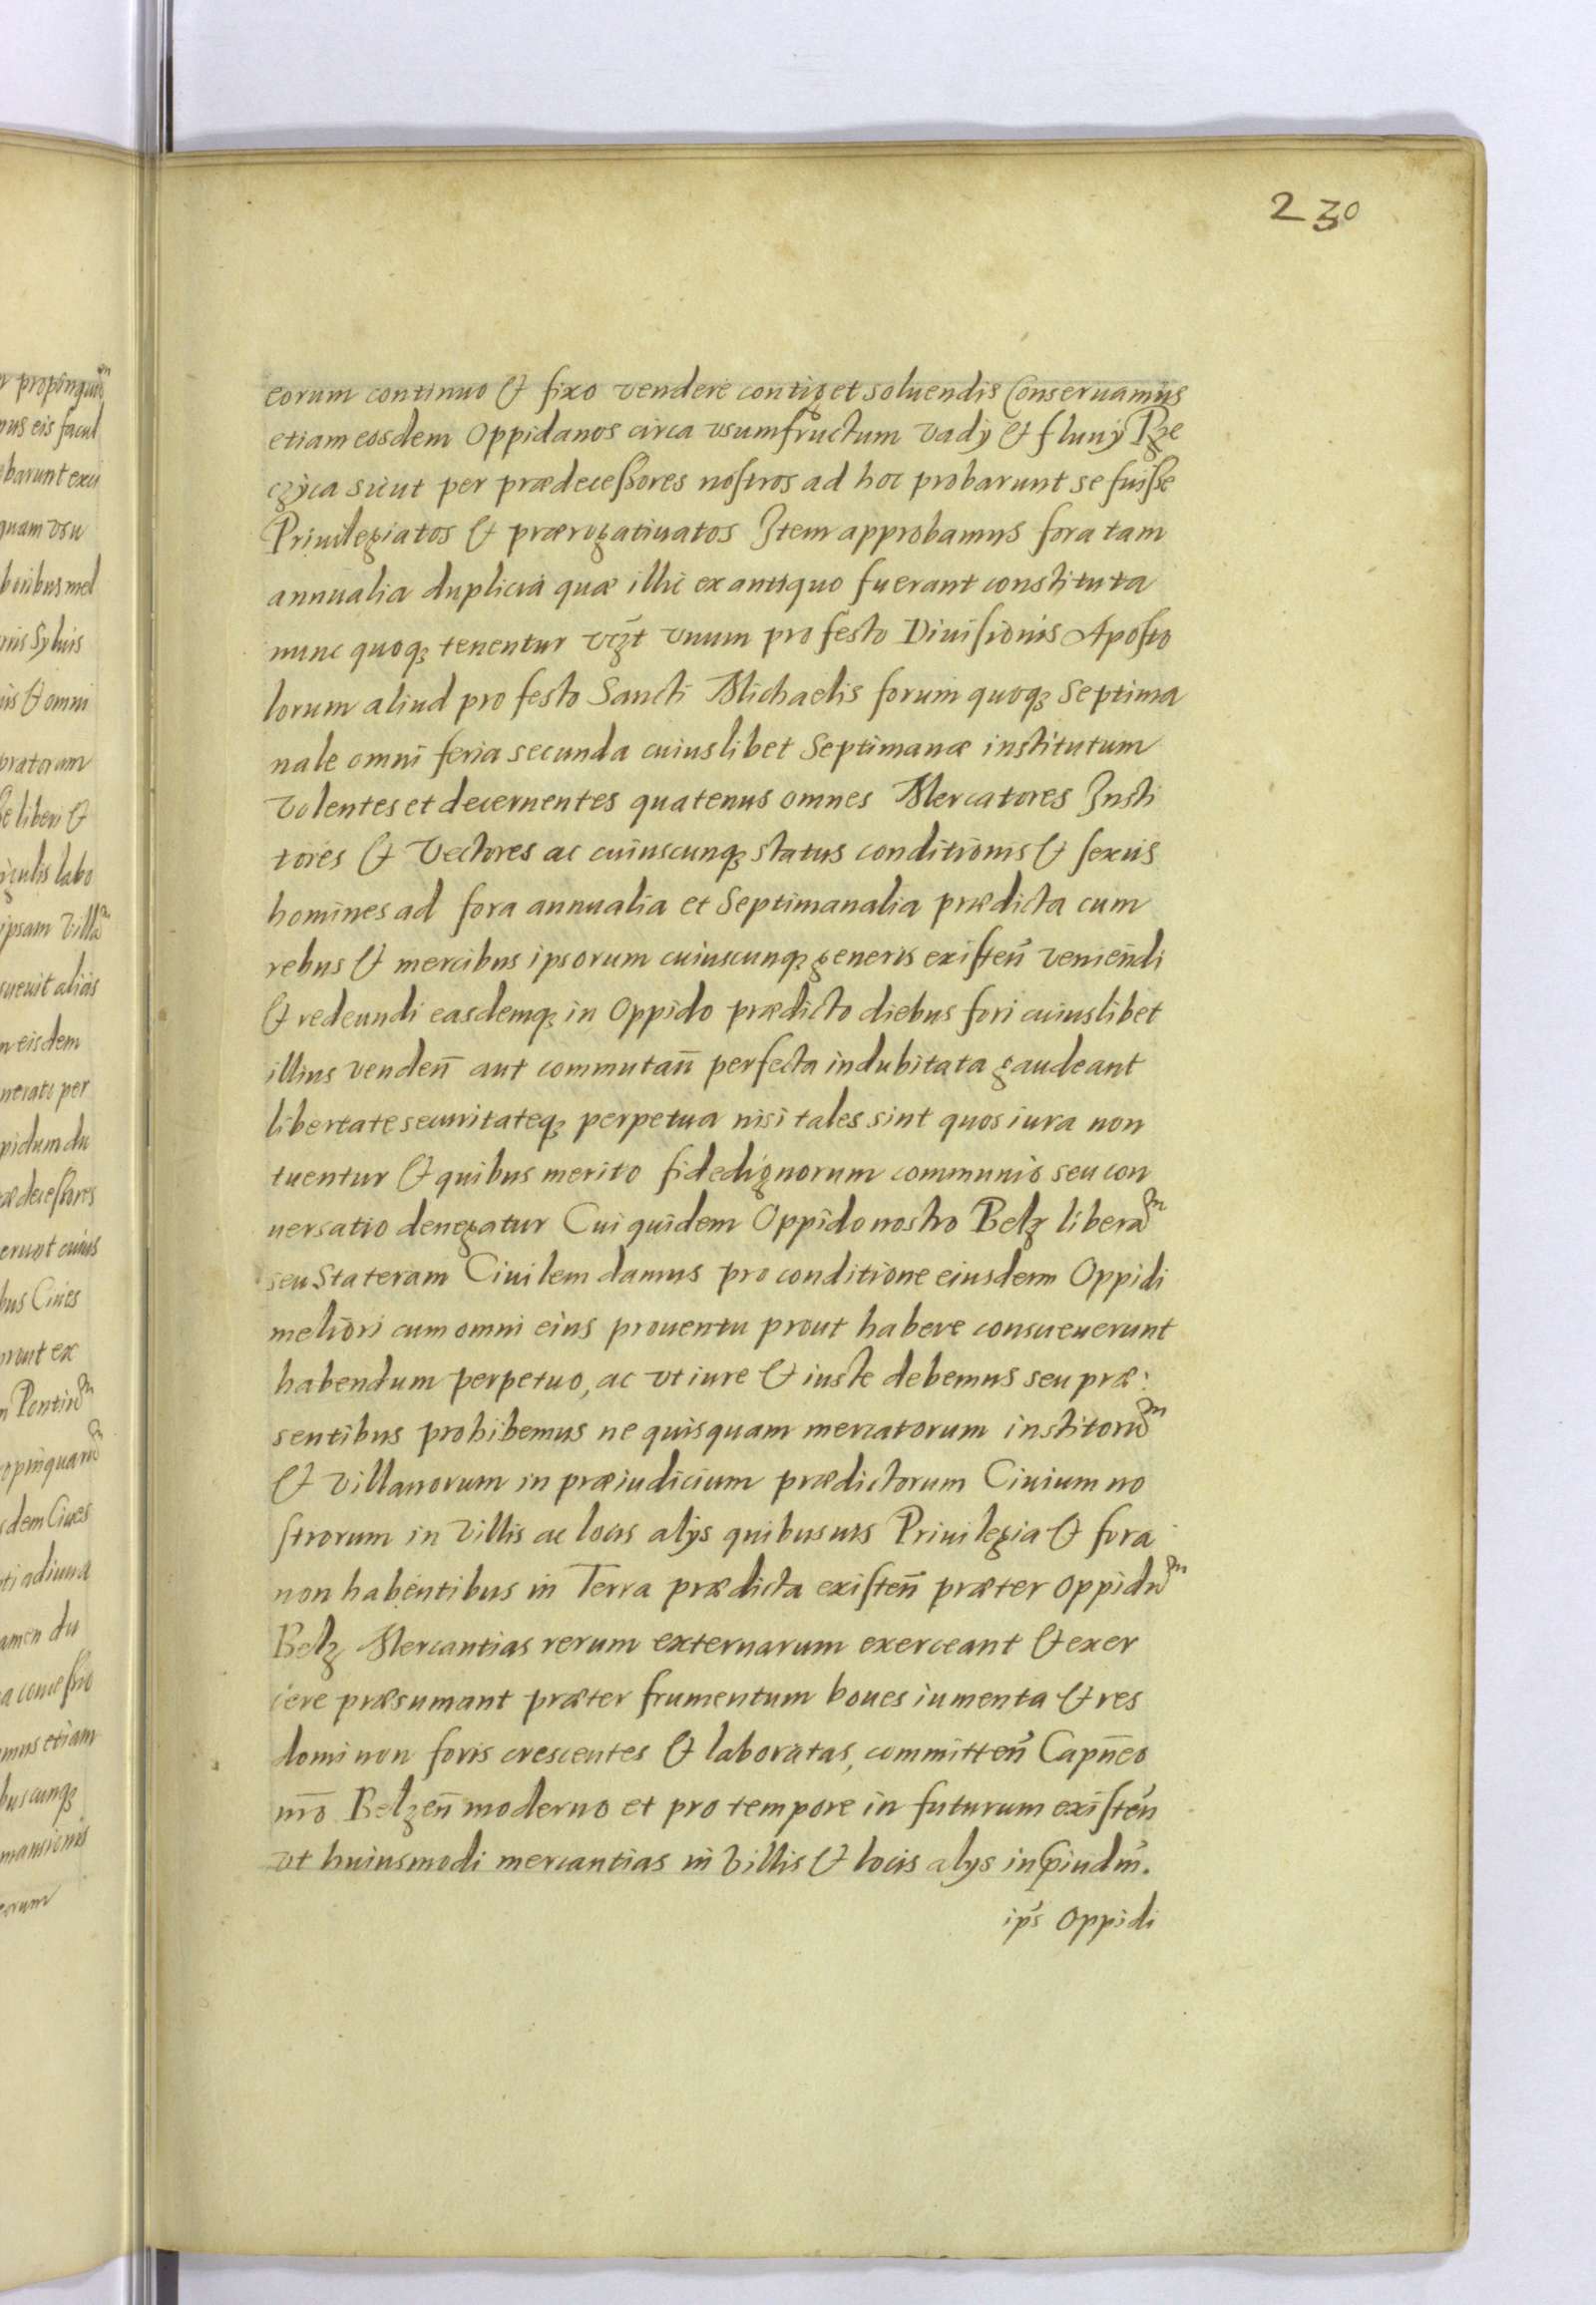 230
eorum continuo & fixo vendere contiget soluendis Conseruamus
etiam eosdem Oppidanos circa vsumfructum vadij & fluuij Rze
czyca sicut per prædecessores nostros ad hoc probarunt se fuisse
Priuilegiatos & prærogatiuatos Item approbamus fora tam
annualia duplicia quæ illic ex antiquo fuerant constituta
nunc quoqꝫ tenentur vcꝫt vnum pro festo Diuisionis Aposto
lorum aliud pro festo Sancti Michaelis forum quoqꝫ Septima
nale omni feria secunda cuiuslibet Septimanæ institutum
volentes et decernentes quatenus omnes Mercatores Insti
tores & Vectores ac cuiuscunqꝫ status conditionis & sexus
homines ad fora annualia et Septimanalia prædicta cum
rebus & mercibus ipsorum cuiuscunqꝫ generis existen̄ veniendi
& redeundi easdemqꝫ in Oppido prædicto diebus fori cuiuslibet
illius venden̄ aut commutan̄ perfecta indubitata gaudeant
libertate securitateqꝫ perpetua nisi tales sint quos iura non
tuentur & quibus merito fidedignorum communio seu con
uersatio denegatur Cui quidem Oppido nostro Belz libera͂
seu Stateram Ciuilem damus pro conditione eiusdem Oppidi
meliori cum omni eius prouentu prout habere consueuerunt
habendum perpetuo, ac vt iure & iuste debemus seu præ:
sentibus prohibemus ne quisquam mercatorum institoru͂
& villanorum in præiudicium prædictorum Ciuium no
strorum in villis ac locis alijs quibusuis Priuilegia & fora
non habentibus in Terra prædicta existen̄ præter oppidu͂
Belz Mercantias rerum externarum exerceant & exer
cere præsumant præter frumentum boues iumenta & res
domi non foris crescentes & laboratas, committen̄ Capn̄eo
nr̄o Belzen̄ moderno et pro tempore in futurum existen̄
vt huiusmodi mercantias in villis & locis alijs in p̄iudm̄.
ips̄ Oppidi